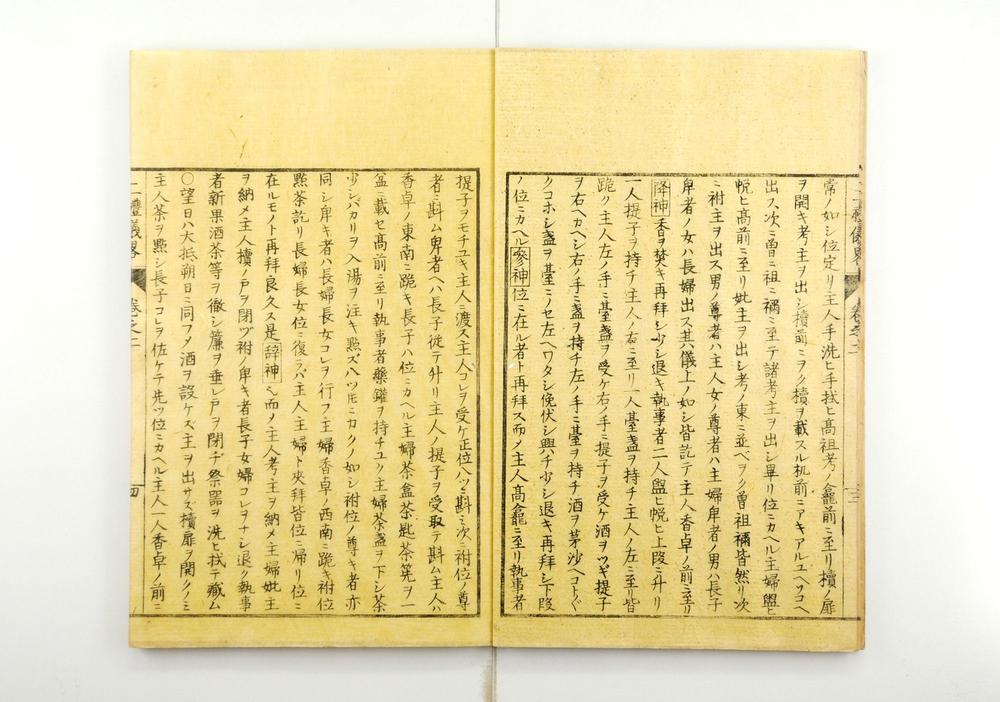 常ノ如シ位定リ主人手洗ヒ手拭ヒ髙祖考ノ龕前ニ至リ櫝ノ扉
ヲ開キ考主ヲ出シ櫝前ニヲク櫝ヲ載スル机前ニアキアルユヘソコヘ
出ス次ニ曽ニ祖ニ禰ニ至テ諸考主ヲ出シ畢リ位ニカヘル主婦盥ヒ
帨ヒ髙前ニ至リ妣主ヲ出シ考ノ東ニ並ベヲク曽祖禰皆然リ次
ニ祔主ヲ出ス男ノ尊者ハ主人女ノ尊者ハ主婦卑者ノ男ハ長子
卑者ノ女ハ長婦出ス其儀上ノ如シ皆訖テ主人香卓ノ前ニ至リ
降神香ヲ焚キ再拜シ少シ退キ執事者二人盥ヒ帨ヒ上段ニ升リ
一人提子ヲ持チ主人ノ右ニ至リ一人臺盞ヲ持チ主人ノ左ニ至リ皆
跪ク主人左ノ手ニ臺盞ヲ受ケ右ノ手ニ提子ヲ受ケ酒ヲツギ提子
ヲ右ヘカヘシ右ノ手ニ盞ヲ持チ左ノ手ニ臺ヲ持チ酒ヲ茅沙ヘコトぐ
クコホシ盞ヲ臺ニノセ左ヘワタシ俛伏シ興チ少シ退キ再拜シ下段
ノ位ニカヘル參神位ニ在ル者ト再拜ス而メ主人髙龕ニ至リ執事者
提子ヲモチユキ主人ニ渡ス主人コレヲ受ケ正位ハツニ斟ミ次ニ祔位ノ尊
者ニ斟ム卑者ヘハ長子從テ升リ主人ノ提子ヲ受取テ斟ム主人ハ
香卓ノ東南ニ跪キ長子ハ位ニカヘル主婦茶盒茶匙茶筅ヲ一
盆ニ載セ髙前ニ至リ執事者藥鑵ヲ持チユク主婦茶盞ヲ下シ茶
少シバカリヲ入湯ヲ注キ㸃ズハツ圧ニカクノ如シ祔位ノ尊キ者亦
同シ卑キ者ハ長婦長女コレヲ行フ主婦香卓ノ西南ニ跪キ祔位
㸃茶訖リ長婦長女位ニ復スハ主人主婦ト夾拜皆位ニ帰リ位ニ
在ルモノト再拜良久ス是辞神也而メ主人考主ヲ納メ主婦妣主
ヲ納メ主人櫝ノ戸ヲ閉ヅ祔ノ卑キ者長子女婦コレヲナシ退ク執事
者新果酒茶等ヲ徹シ簾ヲ垂レ戸ヲ閉チ祭器ヲ洗ヒ拭テ藏ム
○望日ハ大抵朔日ニ同フメ酒ヲ設ケズ主ヲ出サズ櫝扉ヲ開クノミ
主人茶ヲ㸃シ長子コレヲ佐ケテ先ツ位ニカヘル主人一人香卓ノ前ニ
二禮儀畧 卷之二 四